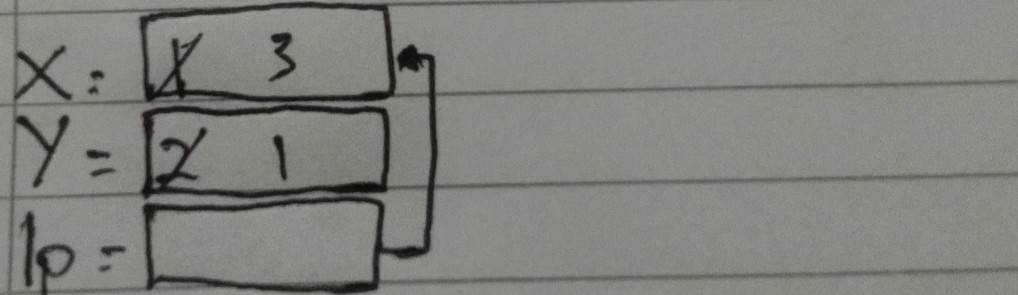 X: 1 3
Y = 2 1
Ip =